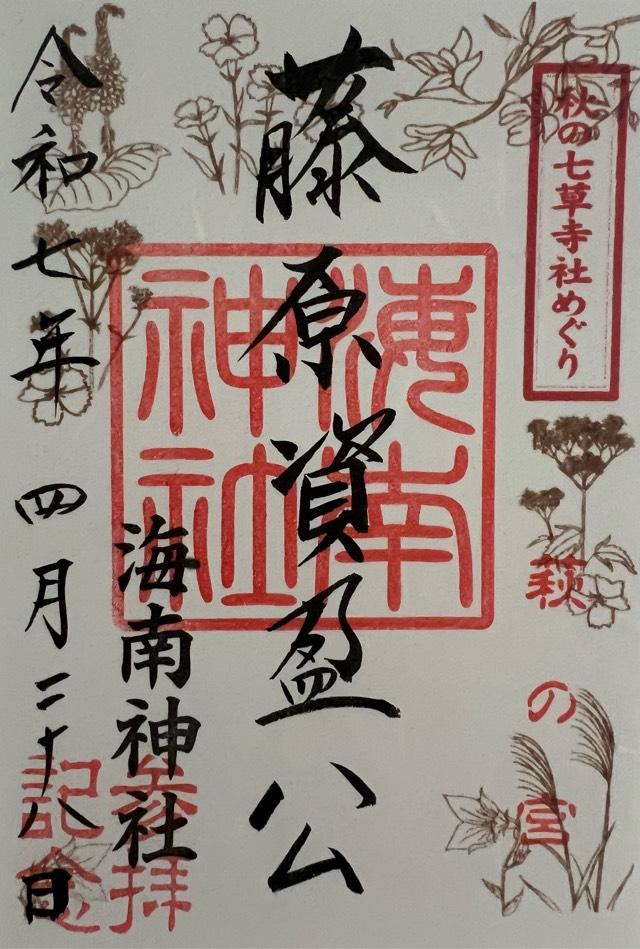 秋の七草寺社めぐり
萩の宮
藤原資盈公
海南神社
海南神社
参拝記念
令和七年四月二十八日